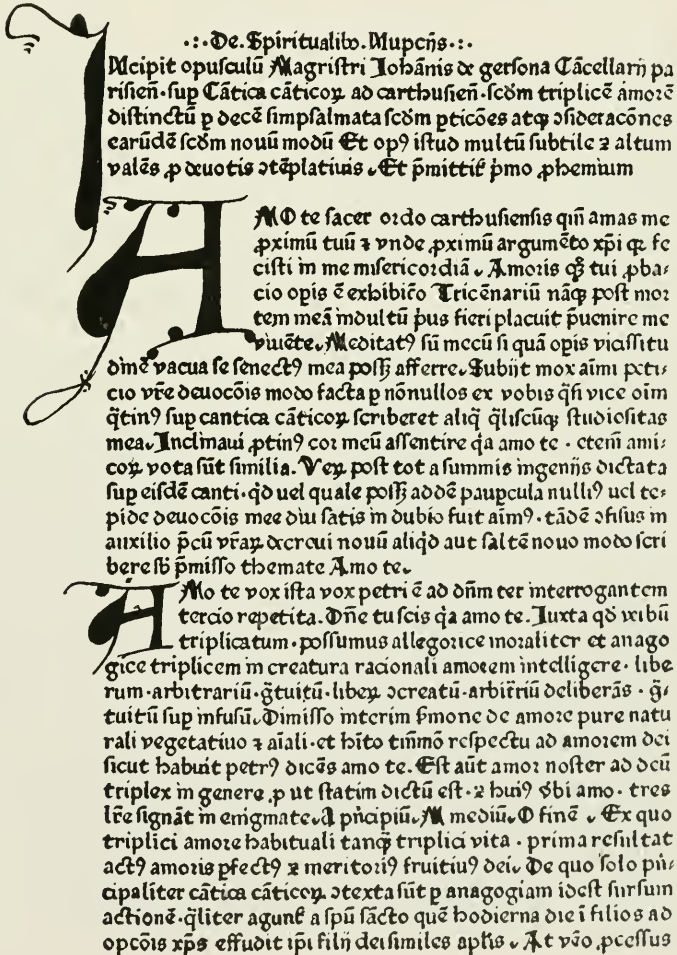 .:.De.Spiritualibꝰ.Nupcijs.:.
INcipit opusculū Magistri Iohānis de gersona Cācellarij pa
risień.sup Cātica cāticoꝝ ad carthusień.scdm triplicē amorē
distinctū p decē simpsalmata scdm pticōes atqꝫ ɔsideracōnes
earūdē scdm nouū modū Et opꝰ istud multū subtile ⁊ altum
valēs ꝓ deuotis ɔtēplatiuis. Et p̄mittit̄ p̄mo ꝓhemium
AMO te sacer ordo carthusiensis qm̄ amas me
ꝓximū tuū ⁊ vnde ꝓximū argumēto xp̄i qꝫ fe
cisti in me misericordiā. Amoris qꝫ tui ꝓba-
cio opis ē exhibic̄o Tricēnariū nāqꝫ post mor
tem meā indultū pꝰus fieri placuit p̄uenire me
viuēte. Meditatꝰ sū mecū si quā opis vicissitu
dinē vacua se senectꝰ mea possꝫ afferre. Subijt mox aīmi peti-
cio vr̄e deuocōis modo facta p nōnullos ex vobis q̄si vice oīm
q̄tinꝰ sup cantica cāticoꝝ scriberet aliq̄ q̄liscūqꝫ studiositas
mea. Inclinaui ꝓtinꝰ cor meū assentire q̇a amo te . etem̄ ami-
coꝝ vota sūt similia. Veꝝ post tot a summis ingenijs dictata
sup eisdē canti.q̇d uel quale possꝫ addē paupcula nulliꝰ uel te-
pide deuocōis mee diu satis in dubio fuit aīmꝰ. tādē ɔfisus in
auxilio p̄cū vr̄aꝝ decreui nouū aliq̇d aut saltē nouo modo scri
bere sb̄ p̄misso themate Amo te.
AMo te vox ista vox petri ē ad dn̄m ter interrogantem
tercio repetita. Dn̄e tu scis q̇a amo te. Iuxta qd̄ verbū
triplicatum . possumus allegorice moraliter et anago
gice triplicem in creatura racionali amorem intelligere . libe
rum . arbitrariū . gᵃtuitū . libeꝝ ɔcreatū . arbit̄riū deliberās . gᵃ-
tuitū sup infusū. Dimisso interim s̄mone de amore pure natu
rali vegetatiuo ⁊ aīali . et hīto tm̄mō respectu ad amorem dei
sicut habuit petrꝰ dicēs amo te. Est aūt amor noster ad deū
triplex in genere ꝓut statim dictū est . ⁊ huiꝰ v̄bi amo . tres
lr̄e signāt in enigmate. A ṗncipiū. M mediū. O finē. Ex quo
triplici amore habituali tanqꝫ triplici vita . prima resultat
actꝰ amoris pfectꝰ ⁊ meritoriꝰ fruitiuꝰ dei. De quo solo ṗn-
cipaliter cātica cāticoꝝ ɔtexta sūt p anagogiam idest sursum
actionē . q̄liter agunt̄ a spū sācto quē hodierna die ī filios ad
opcōis xp̄s effudit ip̄i filij dei similes aplīs. At v̄o ꝓcessus